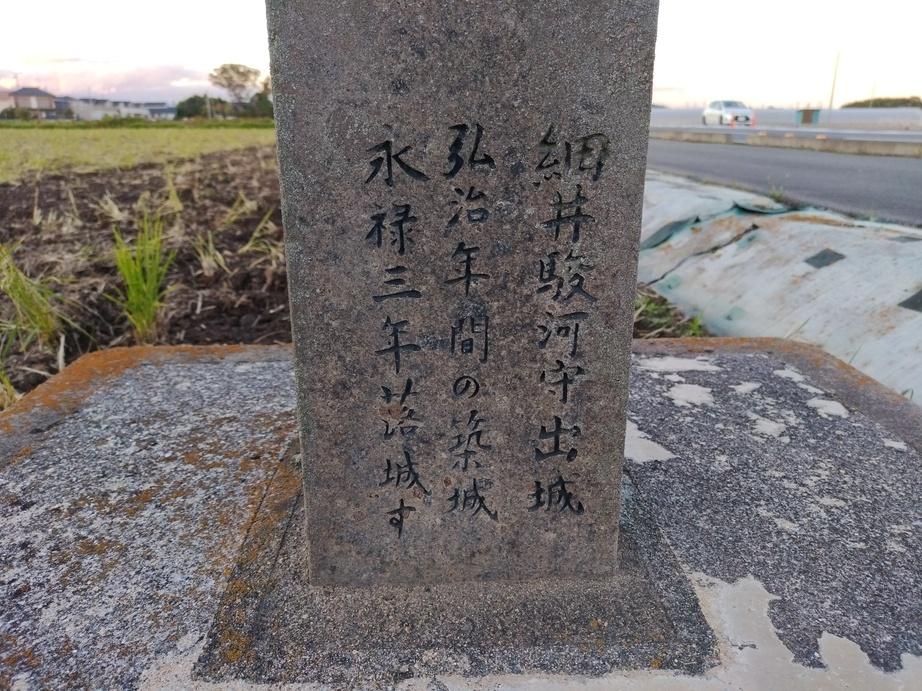 細井駿河守出城
弘治年間の築城
永禄三年落城す